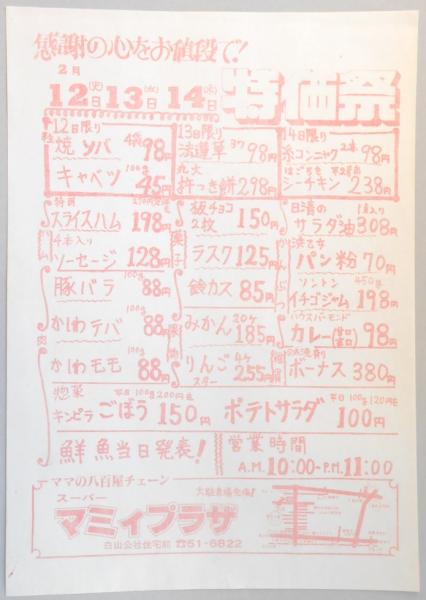 感謝の心をお値段で!
2月
12(火)日 13(水)日 14(木)日 特価祭
12日限り
焼ソバ 4袋 98円
キャベツ 100g 45円
13日限り
法蓮草 3ワ 98円
丸大
杵つき餅 298円
14日限り
糸コンニャク 2本 98円
はごろも
シーチキン 238円
スライスハム 198円
4本入り
ソーセージ 128円
豚バラ 100g 88円
かしわテバ 100g 88円
かしわモモ 100g 88円
肉
板チョコ 2枚 150円
ラスク 125円
鈴カス 85円
菓子
みかん 20ケ 185円
りんご 4ケ 255円
スター
日清の
サラダ油 308円
浜乙女
パン粉 70円
ソントン 450g
イチゴジャム 198円
ハウスバーモンド
カレー(甘口 辛口) 98円
ボーナス 380円
惣菜 平日100g200円を
キンピラごぼう 150円
平日100g120円を
ポテトサラダ 100円
鮮魚当日発表!
営業時間
A.M. 10:00-P.M. 11:00
ママの八百屋チェーン
スーパー
マミィプラザ
白山公社住宅前 ☎51-6822
大駐車場完備!